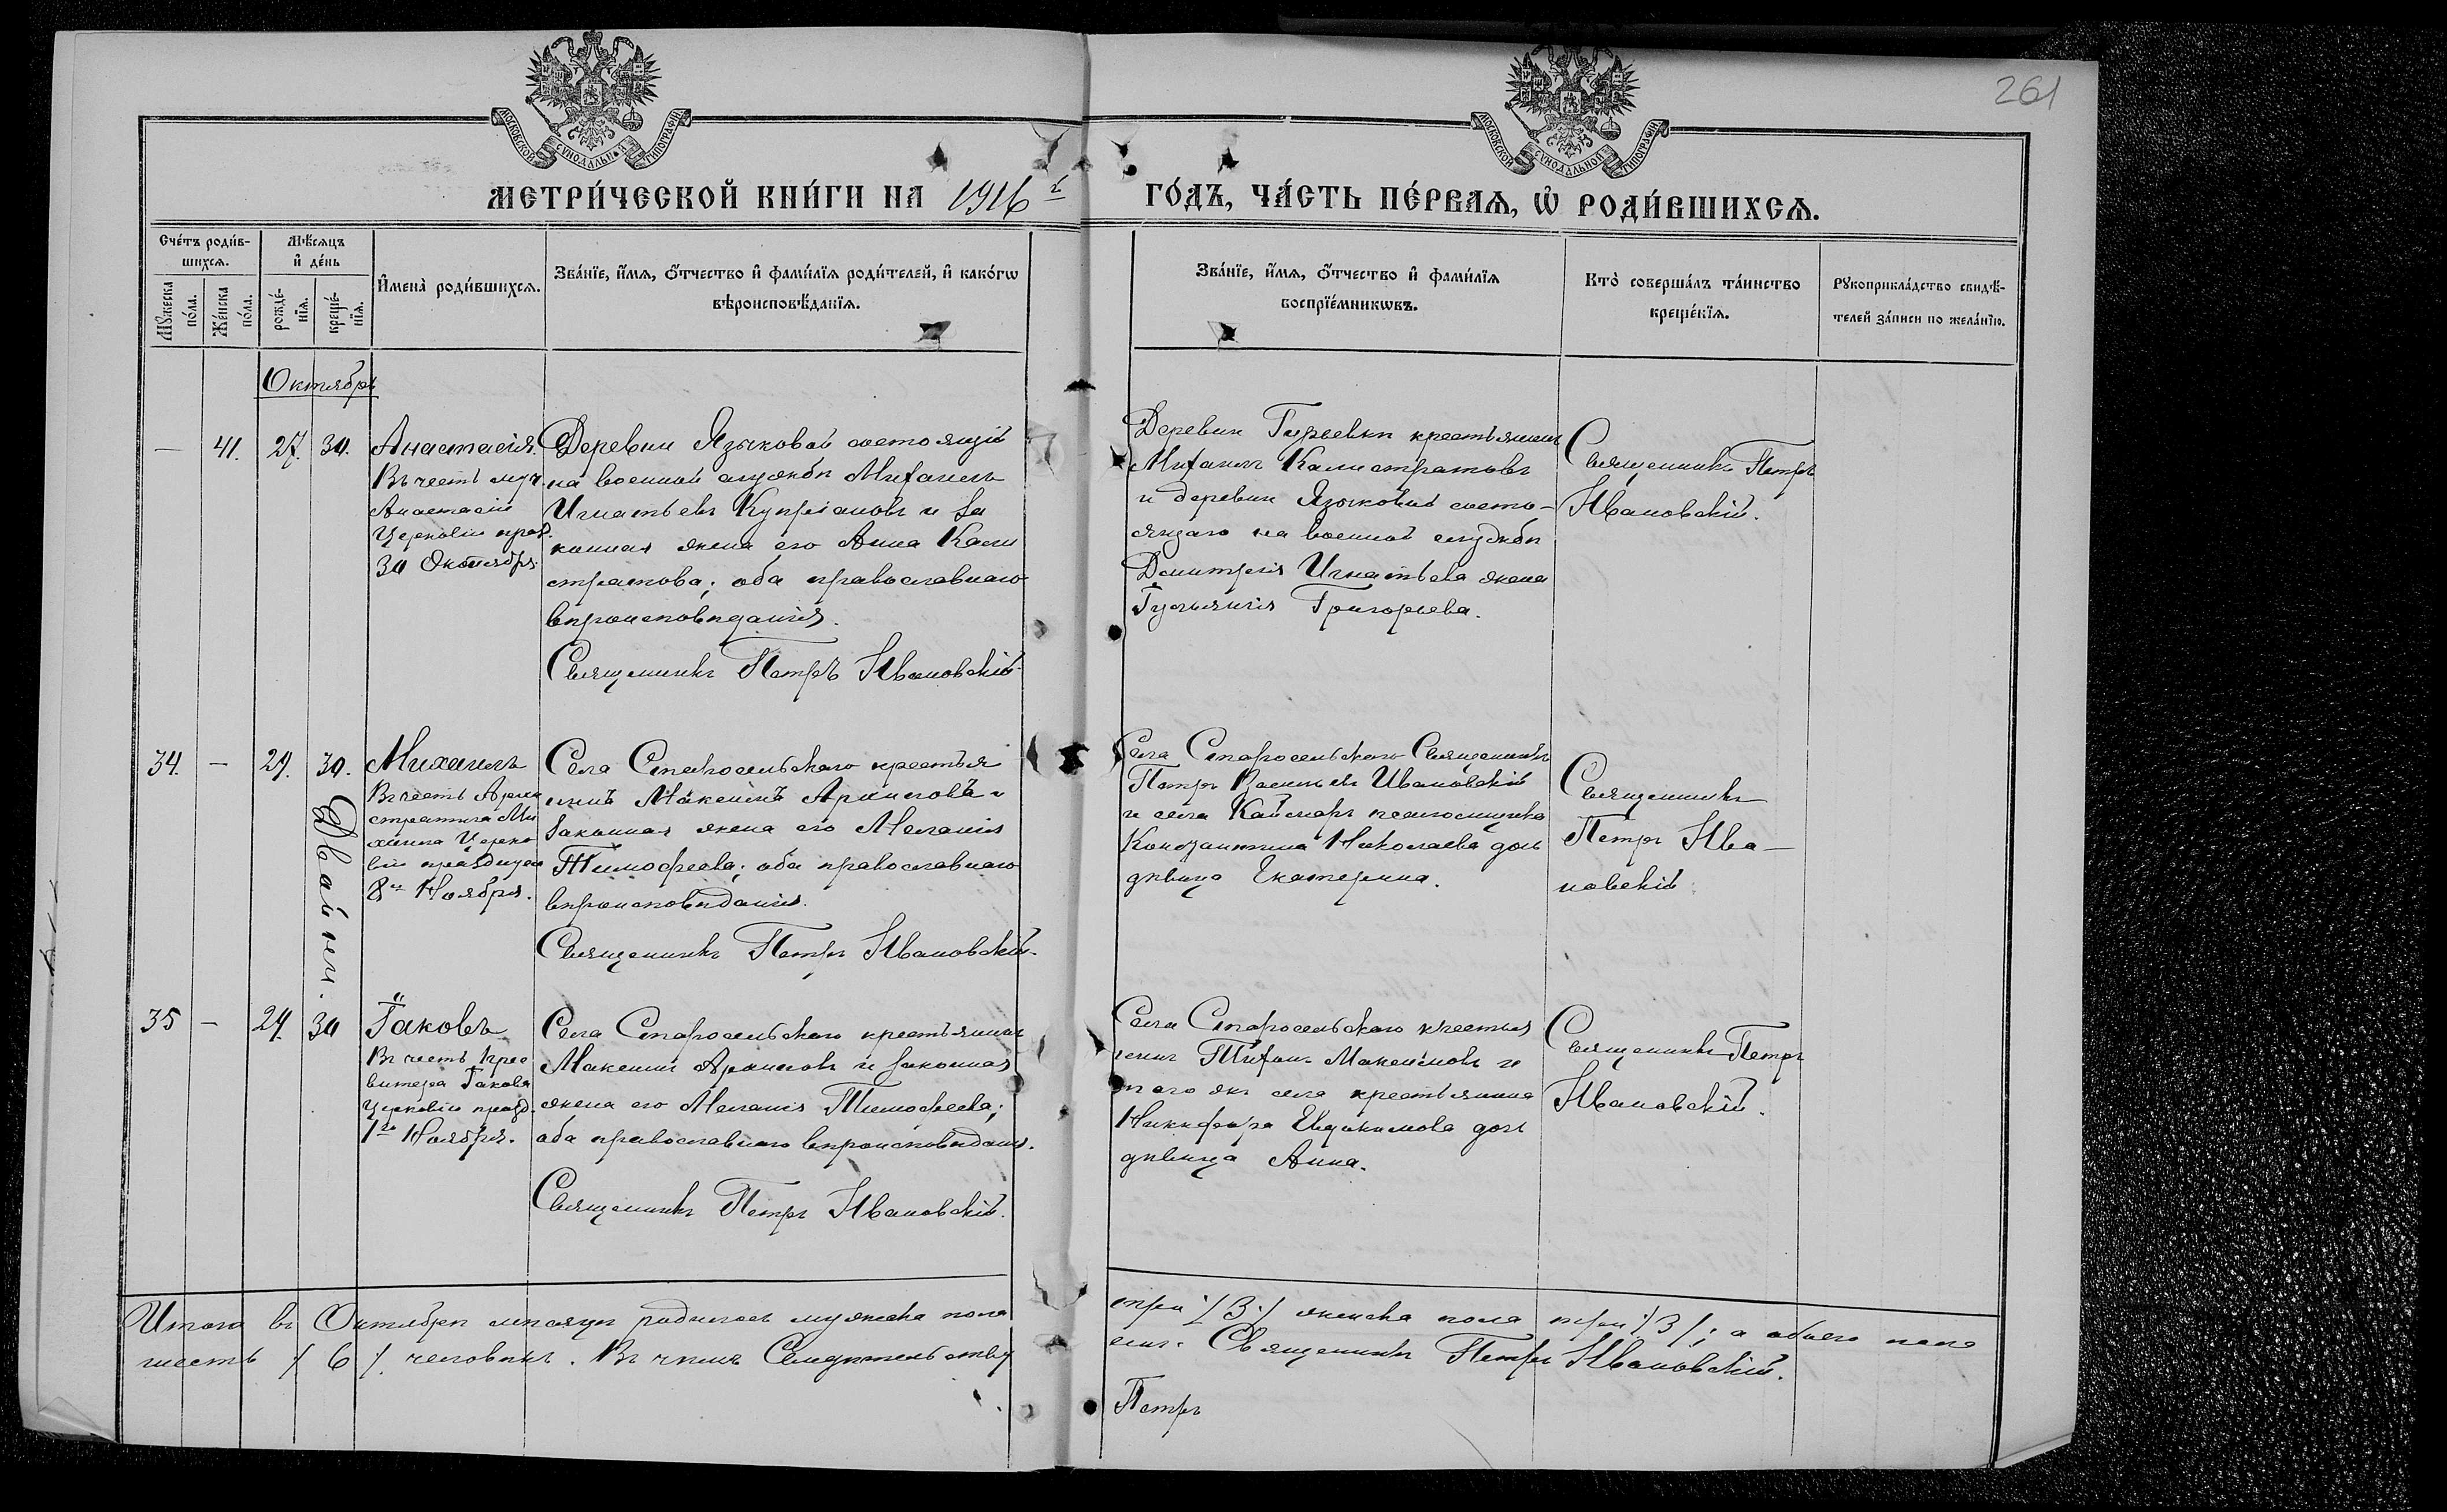 261
МОСКОВСКОЙ СѴНОДАЛЬНОЙ ТИПОГРАФІИ
МОСКОВСКОЙ СѴНОДАЛЬНОЙ ТИПОГРАФІИ
МЕТРИ́ЧЕСКОЙ КНИ́ГИ НА 1916 й ГО́ДЪ, ЧА́СТЬ ПЕ́РВАѦ, Ѡ҆ РОДИ́ВШИХСѦ.
Сче́тъ роди́в-
шихсѧ.
Мꙋ́жеска по́ла.
Же́нска по́ла.
Мѣ́сѧцъ
и҆ де́нь
рожде́-
нїѧ.
креще́-
нїѧ.
И҆мена̀ роди́вшихсѧ.
Зва́нїе, и҆́мѧ, ѻ҆́тчество и҆ фами́лїѧ роди́телей, и҆ како́гѡ
вѣроисповѣ́данїѧ.
Зва́нїе, и҆́мѧ, ѻ҆́тчество и҆ фами́лїѧ
воспрїе́мникѡвъ.
Кто̀ соверша́лъ та́инство
креще́нїѧ.
Рꙋкоприкла́дство свидѣ́-
телей за́писи по жела́нїю.
Октябрь
— 41. 27. 30.
Анастасія.
Въ честь муч.
Анастасіи
Церковію праз.
30 Октября.
Деревни Языковой состоящій
на военной службѣ Михаилъ
Игнатьевъ Купріановъ и за
конная жена его Анна Кали
стратова; оба православнаго
вѣроисповѣданія.
Священникъ Петръ Ивановскій
Деревни Гурьевки крестьянинъ
Михаилъ Калистратовъ
и деревни Языковой состо-
ящаго на военной службѣ
Димитрія Игнатьева жена
Григорьева.
Священникъ Петръ
Ивановскій.
34. — 29. 30.
Двойни.
Михаилъ
Въ честь Архи
стратига Ми
хаила Церко
вію празднуем
8го Ноября.
Села Старосельскаго крестья
нинъ Максимъ Архиповъ и
законная жена его Меланія
Тимофеева; оба православнаго
вѣроисповѣданія.
Священникъ Петръ Ивановскій.
Села Старосельскаго Священникъ
Петръ Васильевъ Ивановскій
и села Каймаръ псаломщика
Константина Николаева дочь
дѣвица Екатерина.
Священникъ
Петръ Ива-
новскій.
35 — 29. 30
Іаковъ
Въ честь прес
витера Іакова
Церковію празд.
1го Ноября.
Села Старосельскаго крестьянинъ
Максимъ Архиповъ и законная
жена его Меланія Тимофеева;
оба православнаго вѣроисповѣданія.
Священникъ Петръ Ивановскій.
Села Старосельскаго крестья
нинъ Максимовъ и
того же села крестьянина
Никифора Евдокимова дочь
дѣвица Анна.
Священникъ Петръ
Ивановскій.
Итого въ Октябрѣ мѣсяцѣ родилось мужеска пола три /3/ женска пола три /3/; а обоего пола
шесть /6/ человѣкъ. Въ чемъ Священникъ Петръ Ивановскій.
Петръ